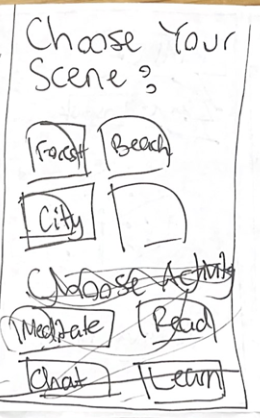 Choose Your
Scene:
Forest Beach
City
Choose Activity
Meditate Read
Chat Learn